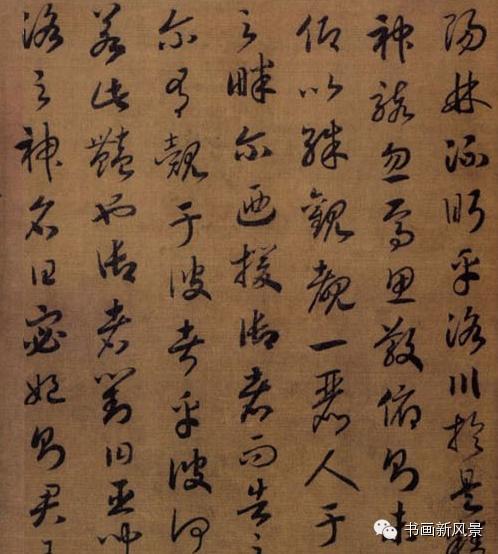 陽林流眄乎洛川於是精
神駭忽焉思散俯則未
仰以殊觀覩一麗人于
之畔尔迺援御者而告之
尔有覿于彼者乎彼何
若此豔也御者對曰臣聞
洛之神名曰宓妃則君王
书画新风景